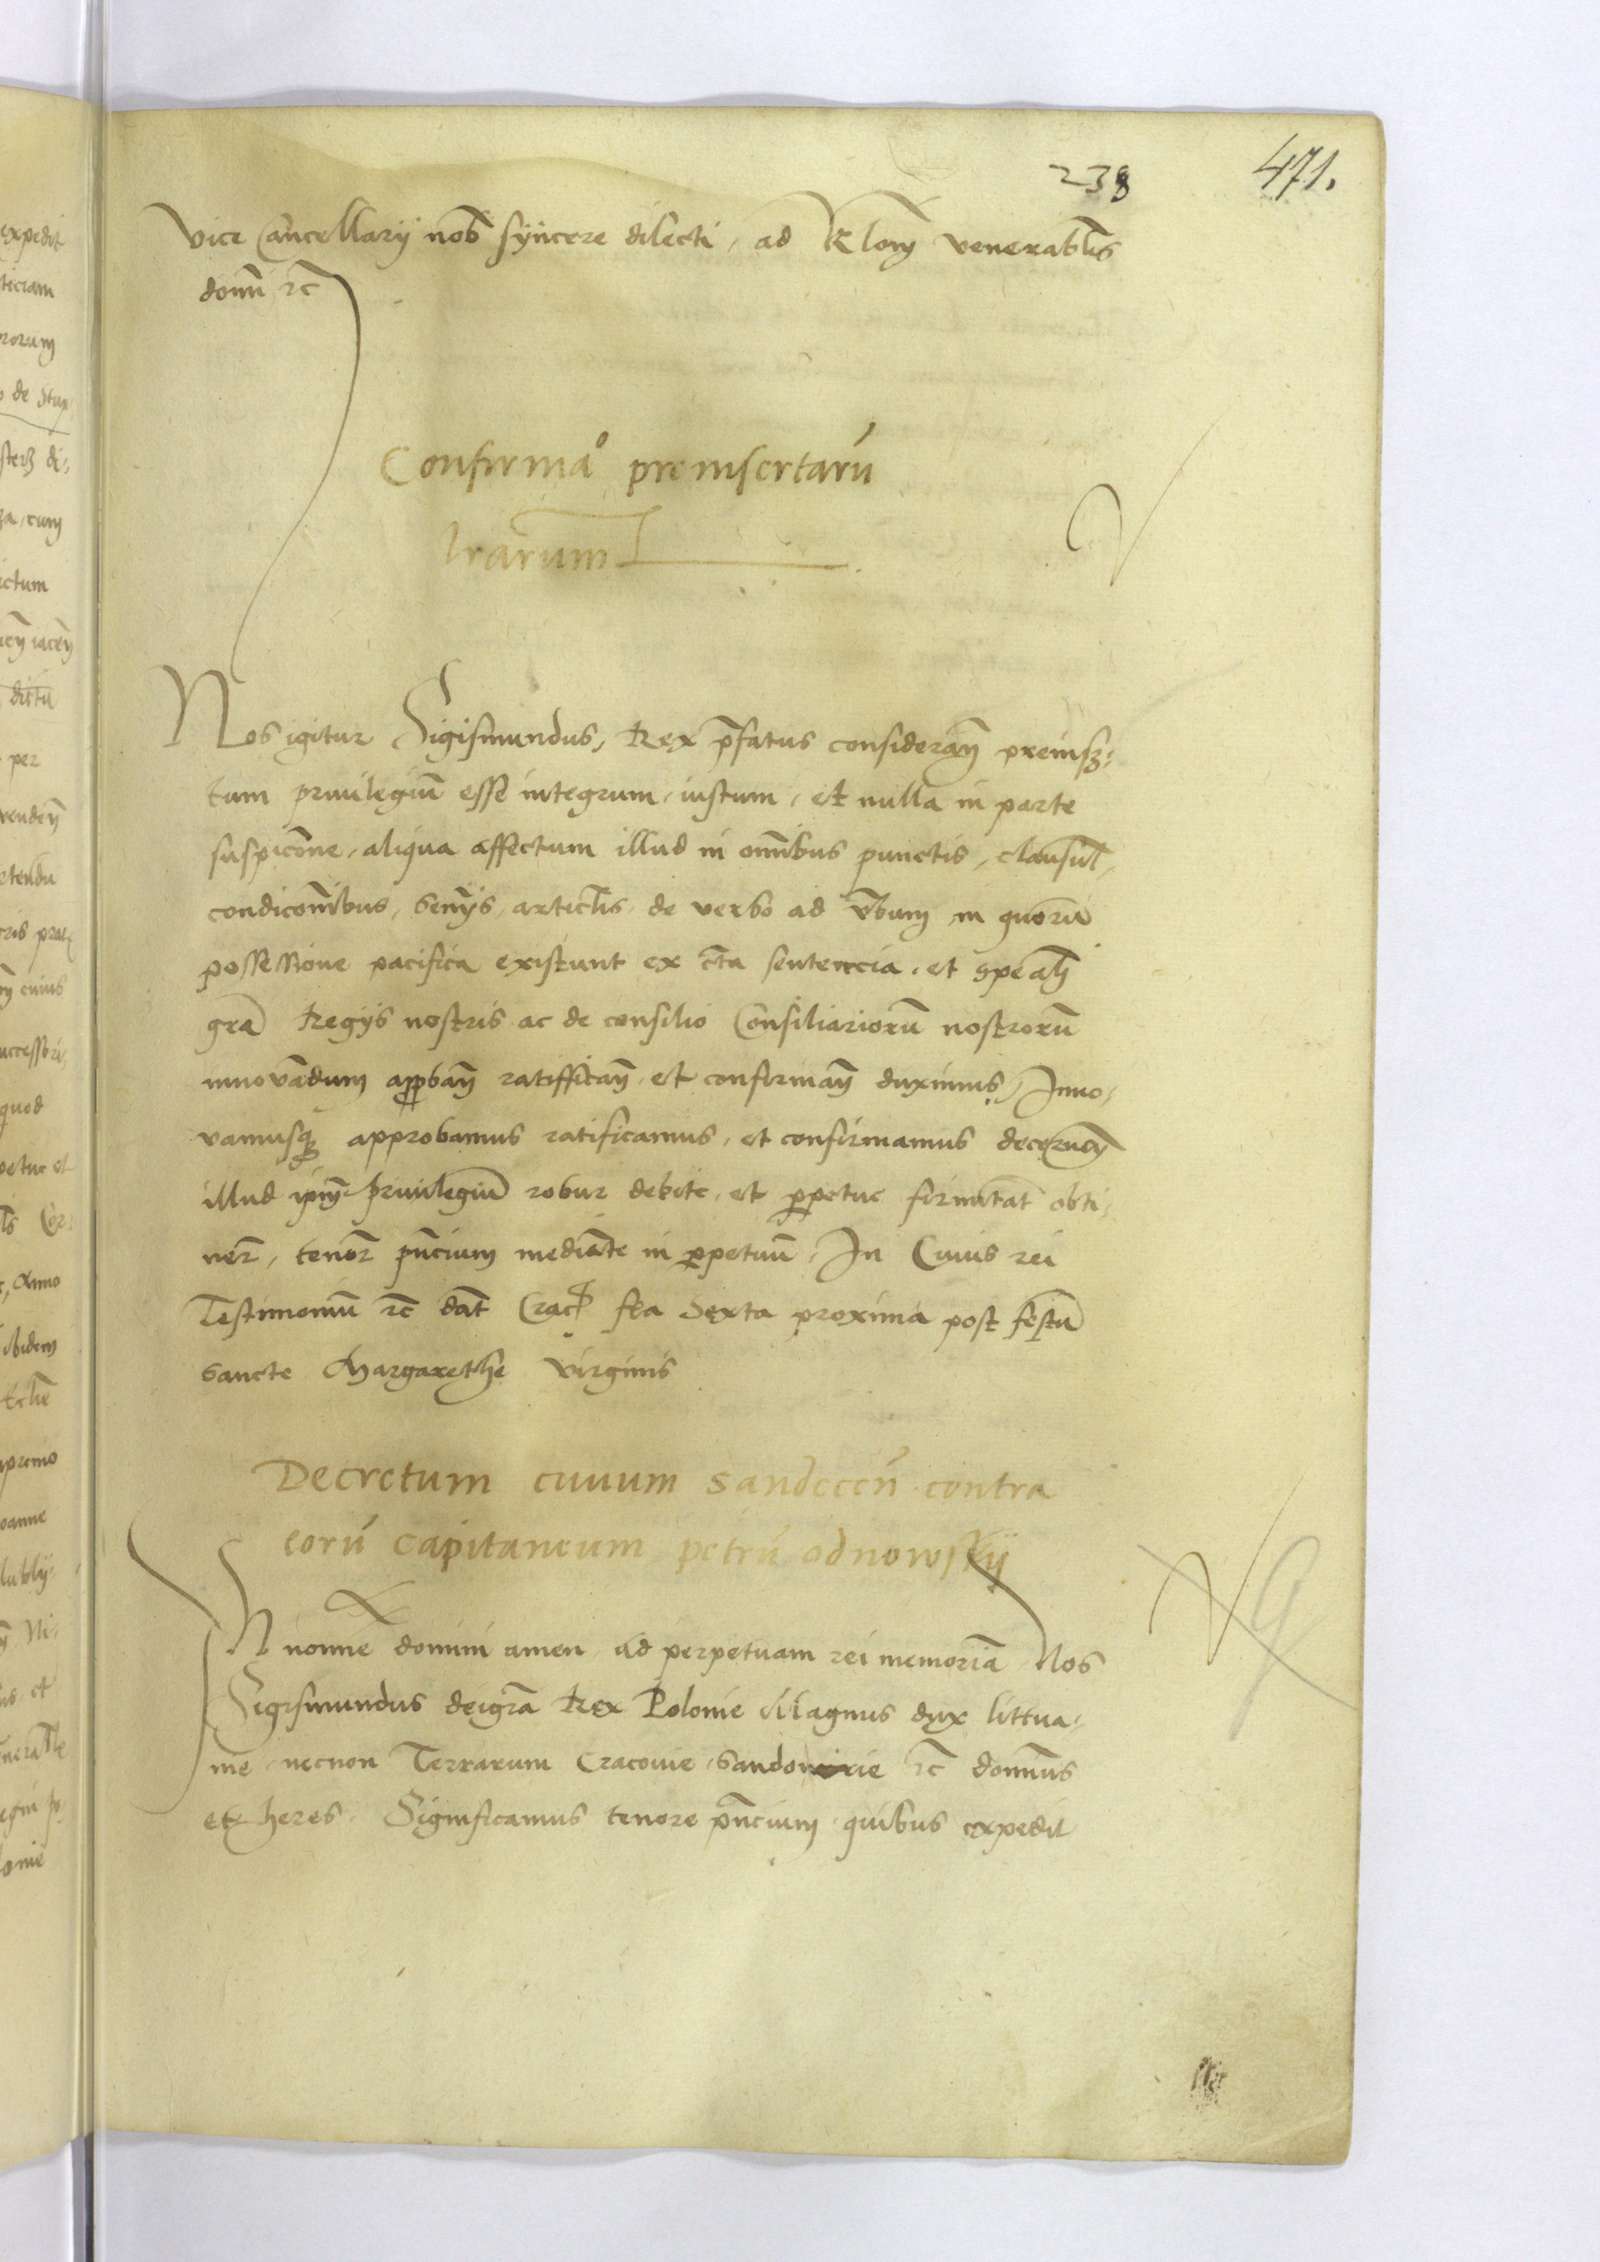 238 471.
Vice Cancellarij nob̄ syncere dilecti, ad Rlōnȩ venerabl̄is
domī rc̄
Confirmāo preinsertarū
lrārum
Nos igitur Sigismundus, Rex p̄fatus considerān̄ preinser:
tum priuilegiū esse integrum, iustum, et nulla in parte
suspicōne, aliqua affectum illud in om̄ibus punctis, clausul̄,
condicōnibus, sen̄ijs, articl̄is, de verbo ad v̄bum in quorū
possessione pacifica existunt ex c̄ta sentencia, et speāli
grā Regijs nostris ac de consilio Consiliariorū nostrorū
innovādum appbān̄ ratifficān̄ et confirmān̄ duximus, Inno,
vamusq; approbamus ratificamus, et confirmamus decernen̄
illud ipm̄ priuilegiū robur debite, et ppetue firmitāt̄ obti,
ner̄, tenor̄ pn̄cium mediāte in ppetuū. In Cuius rei
Testimoniū rc̄ dat̄ Crac̄ fr̄a Sexta proxima post festū
sancte Margarethe virginis
Decretum civium sandeceñ contra
eorū capitaneum petrū odnowskij
IN nom̄ie domini amen Ad perpetuam rei memoriā Nos
Sigismundus deigrā Rex Polonie Magnus dux littua,
nie, necnon Terrarum Cracovie, Sandomirie rc̄ domn̄us
et heres. Significamus tenore pn̄cium quibus expedit